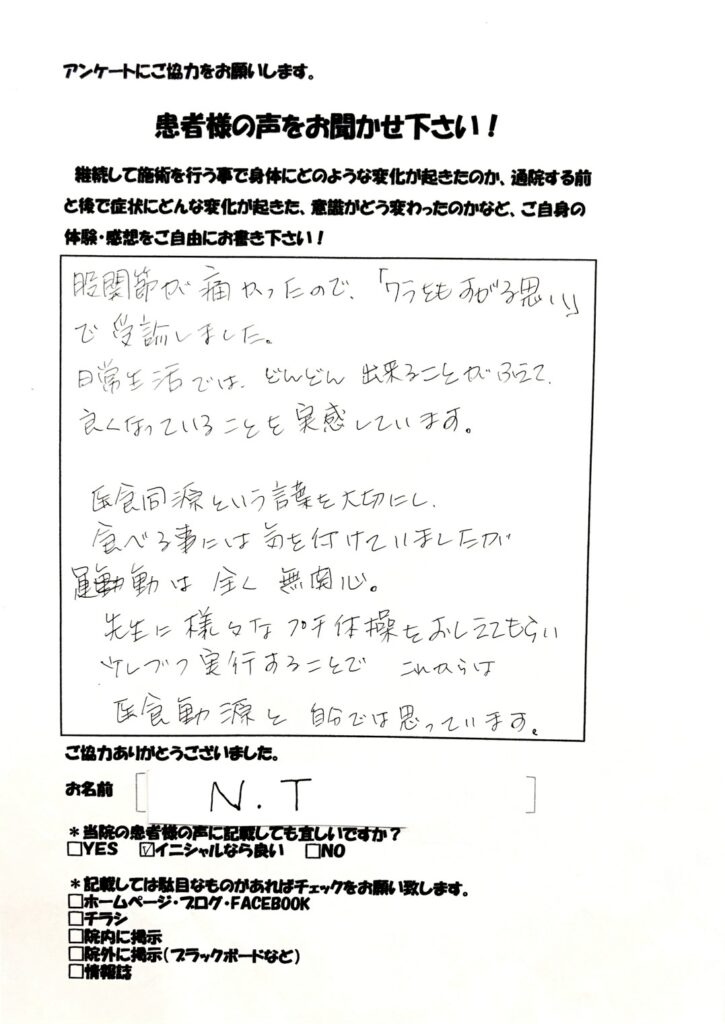 アンケートにご協力をお願いします。
患者様の声をお聞かせ下さい!
継続して施術を行う事で身体にどのような変化が起きたのか、通院する前
と後で症状にどんな変化が起きた、意識がどう変わったのかなど、ご自身の
体験・感想をご自由にお書き下さい!
股関節が痛かったので、「ワラをもすがる思い」
で受診しました。
日常生活では、どんどん出来ることがふえて、
良くなっていることを実感しています。
医食同源という言葉を大切にし、
食べる事には気を付けていましたが
運動は全く無関心。
先生に様々なプチ体操をおしえてもらい
少しづつ実行することでこれからは
医食動源と自分では思っています。
ご協力ありがとうございました。
お名前 N.T
＊当院の患者様の声に記載しても宜しいですか?
□YES ☑イニシャルなら良い □NO
＊記載しては駄目なものがあればチェックをお願い致します。
□ホームページ・ブログ・FACEBOOK
□チラシ
□院内に掲示
□院外に掲示(ブラックボードなど)
□情報誌